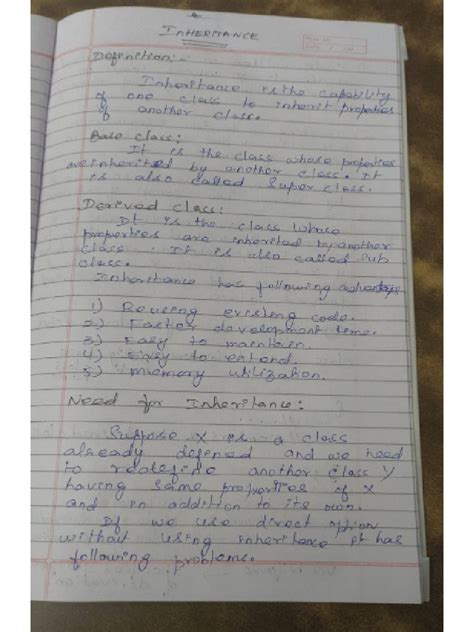 INHERITANCE
Definition:-
Inheritance is the capability
of one class to inherit properties
of another class.
Base class:
It is the class whose properties
are inherited by another class. it
is also called Super class.
Derived class:
It is the class whose
properties are inherited by another
class. It is also called sub
class.
Inheritance has following
1) Reusing existing code.
2) Faster development time.
3) Easy to maintain.
4) Easy to extend.
5) memory utilization.
Need for Inheritance:
Suppose X is a class
already defined and we need
to redefine another class Y
having same properties of X
and in addition to its own.
If we use direct option
without using inheritance it has
following problems.